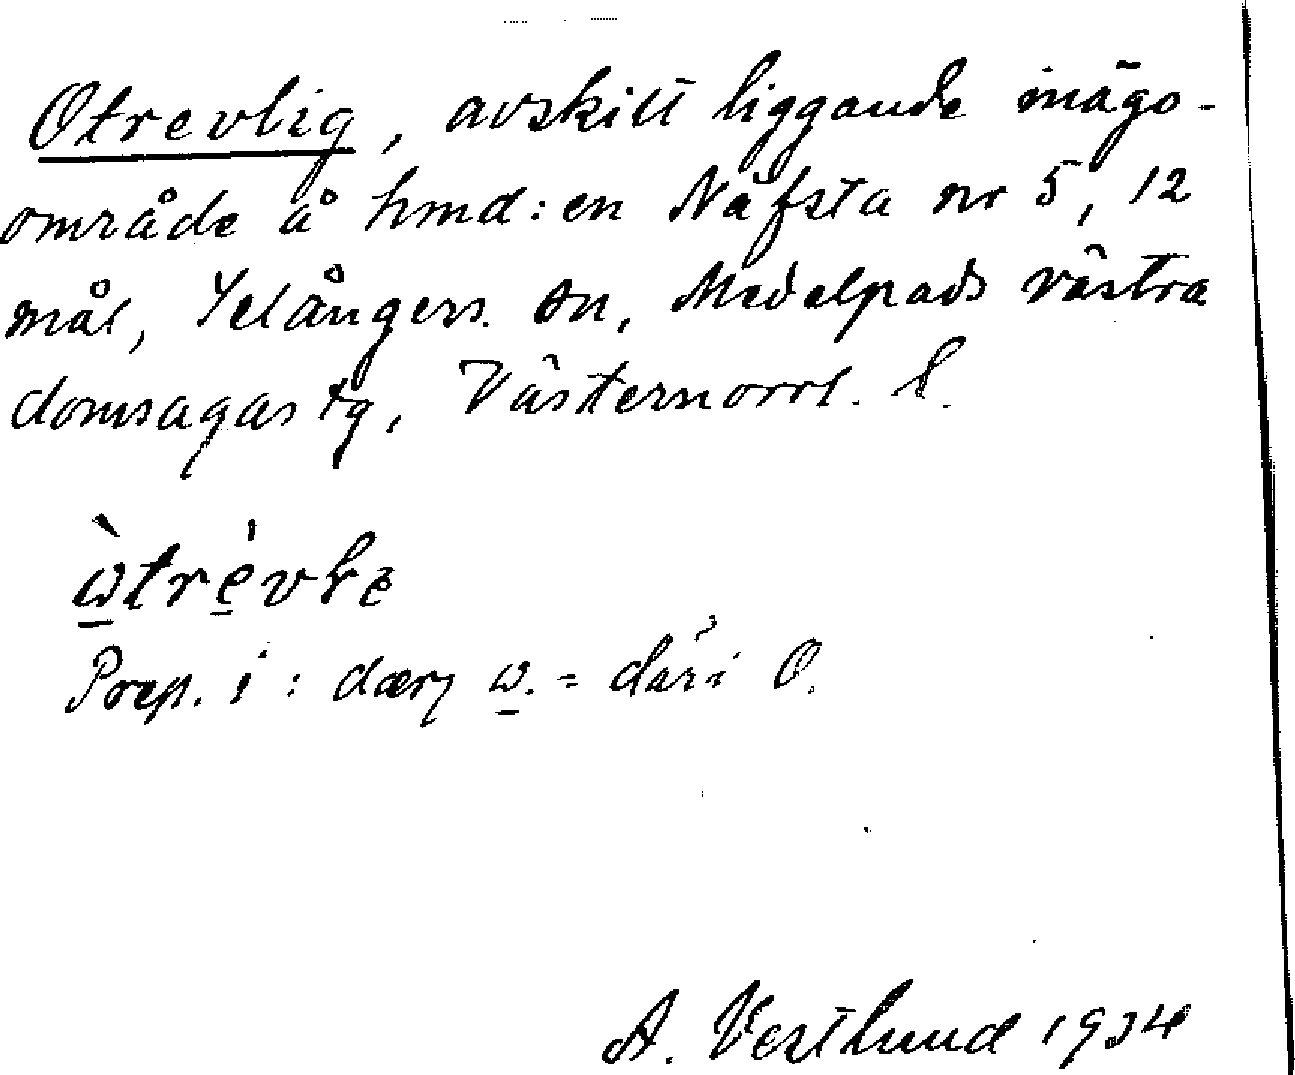 Otrevlig, avskilt liggande inägo-
område å hmd:en Näfsta nr 5, 12
mål, Selångers sn, Medelpads västra
domsagas tg, Västernorrl. l.
ὼtrévle
Prep. i : dær ω. = där i O.
A. Vestlund 1934